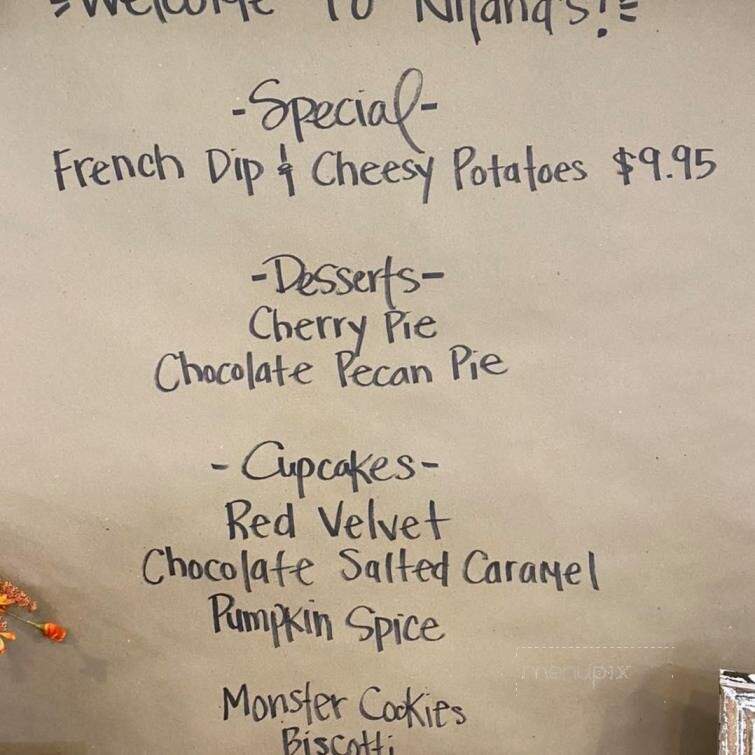 Welcome To Niland's!
-Special-
French Dip & Cheesy Potatoes $9.95
-Desserts-
Cherry Pie
Chocolate Pecan Pie
-Cupcakes-
Red Velvet
Chocolate Salted Caramel
Pumpkin Spice
Monster Cookies
Biscotti
menupix